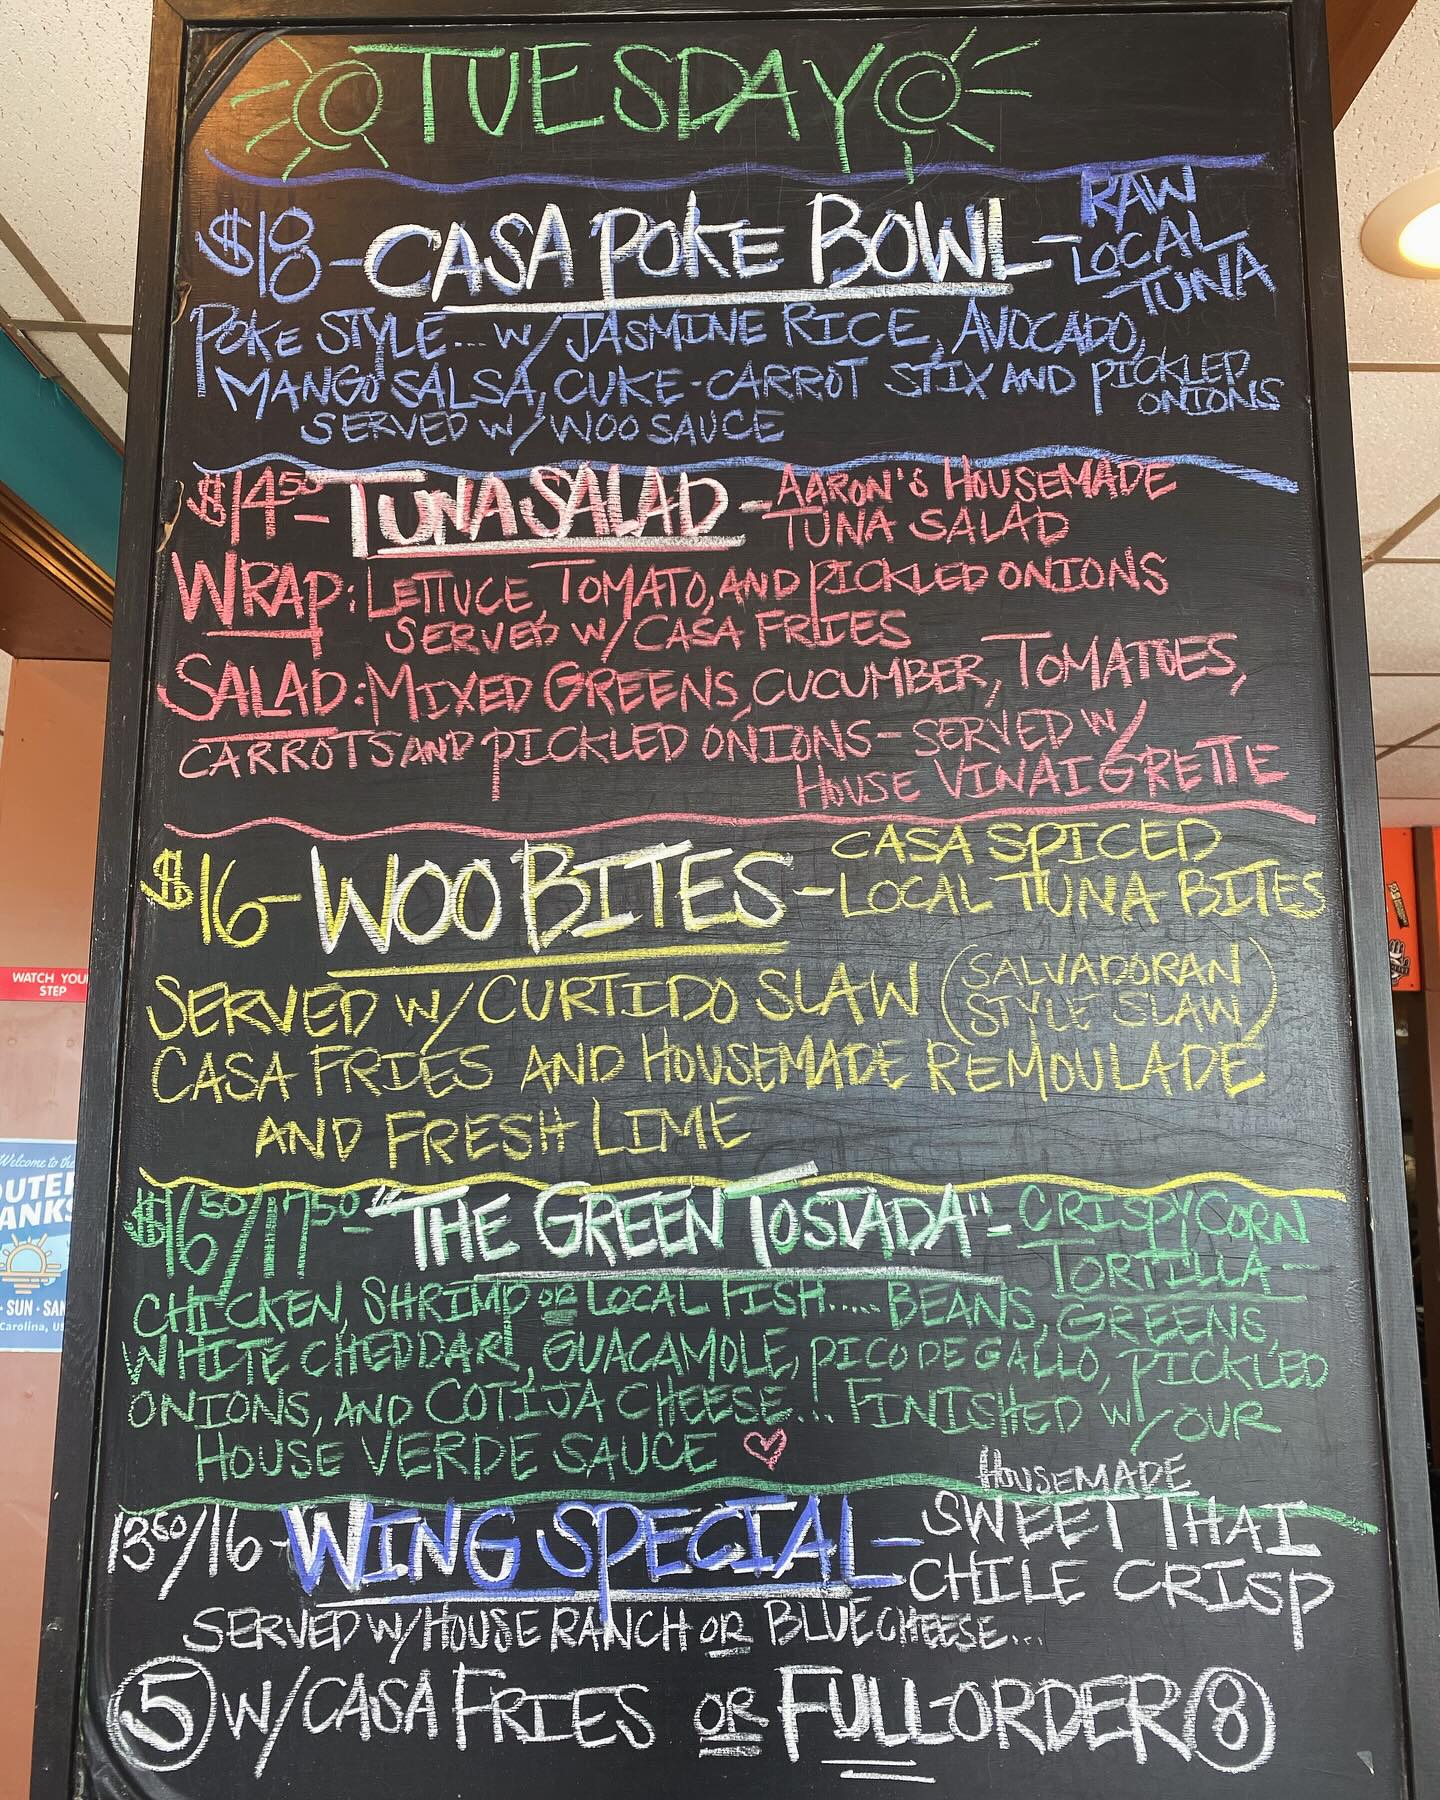 TUESDAY
$18 - CASA POKE BOWL - RAW LOCAL TUNA
POKE STYLE... W/ JASMINE RICE, AVOCADO,
MANGO SALSA, CUKE-CARROT STIX AND PICKLED ONIONS
SERVED W/ WOO SAUCE
$14.50 - TUNA SALAD - AARON'S HOUSEMADE
TUNA SALAD
WRAP: LETTUCE, TOMATO, AND PICKLED ONIONS
SERVED W/ CASA FRIES
SALAD: MIXED GREENS, CUCUMBER, TOMATOES,
CARROTS AND PICKLED ONIONS - SERVED W/
HOUSE VINAIGRETTE
$16 - WOO BITES - CASA SPICED
LOCAL TUNA BITES
SERVED W/ CURTIDO SLAW (SALVADORAN STYLE SLAW)
CASA FRIES AND HOUSEMADE REMOULADE
AND FRESH LIME
$16.50/17.50 - "THE GREEN TOSTADA" - CRISPY CORN
TORTILLA -
CHICKEN, SHRIMP OR LOCAL FISH..... BEANS, GREENS,
WHITE CHEDDAR, GUACAMOLE, PICO DE GALLO, PICKLED
ONIONS, AND COTIJA CHEESE... FINISHED W/ OUR
HOUSE VERDE SAUCE
13.50/16 - WING SPECIAL - HOUSEMADE
SWEET THAI
CHILE CRISP
SERVED W/ HOUSE RANCH OR BLUE CHEESE...
5 W/ CASA FRIES OR FULL ORDER 8
WATCH YOUR
STEP
Welcome to the
OUTER
BANKS
· SUN · SAN
Carolina, US